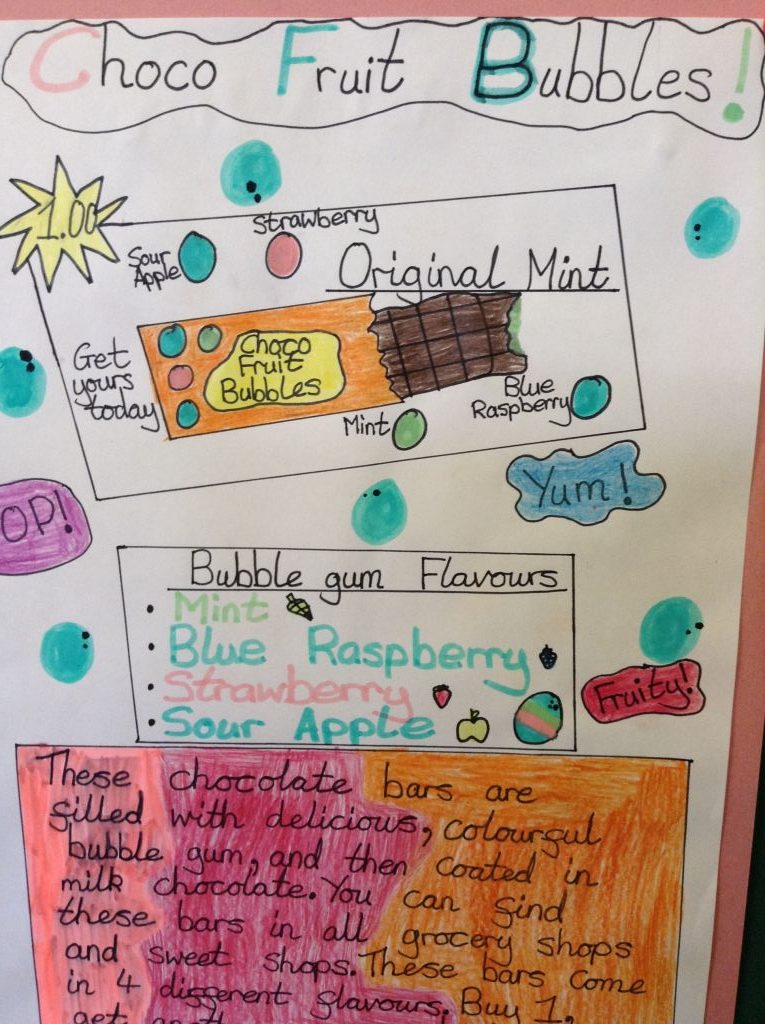 Choco Fruit Bubbles!
1.00
Strawberry
Sour
Apple
Original Mint
Get
yours
today
Choco
Fruit
Bubbles
Blue
Raspberry
Mint
Yum!
OP!
Bubble gum Flavours
• Mint
• Blue Raspberry
• Strawberry
• Sour Apple
Fruity!
These chocolate bars are
filled with delicious, colourful
bubble gum, and then coated in
milk chocolate. You can find
these bars in all grocery shops
and sweet shops. These bars come
in 4 different flavours. Buy 1,
get